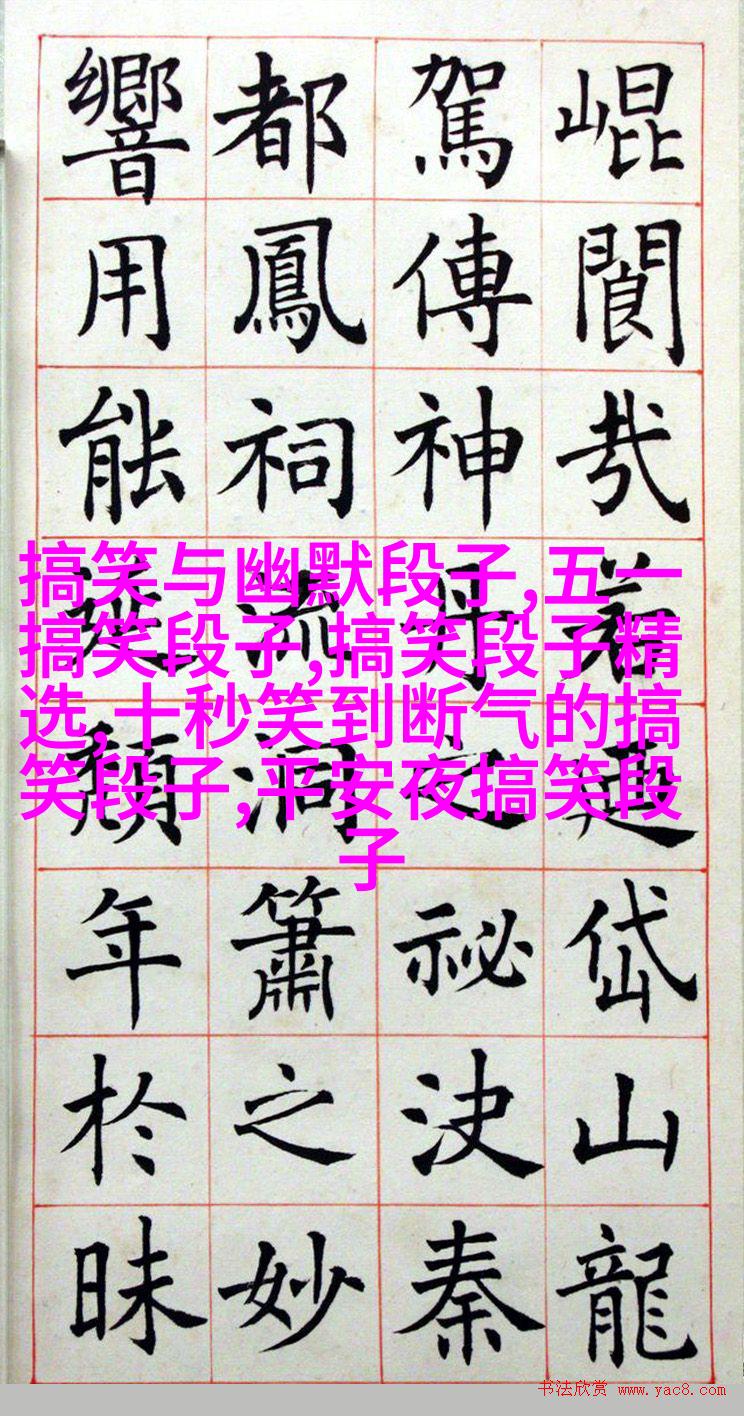 崐閬若岱山龍
駕傳神丹之祕決秦
都鳳祠流洞簫之妙
響用能頹年於昧
搞笑与幽默段子,五一
搞笑段子,搞笑段子精
选,十秒笑到断气的搞
笑段子,平安夜搞笑段
子
书法欣赏 www.yac8.com